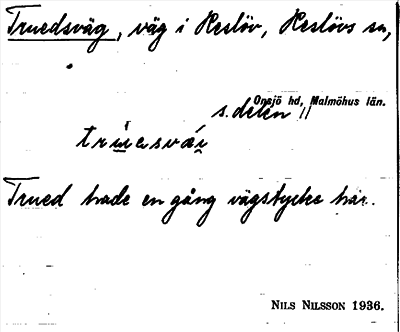 Truedsväg, väg i Reslöv, Reslövs sn,
Onsjö hd, Malmöhus län.
s. delen
Trued hade en gång vägstycke här.
NILS NILSSON 1936.